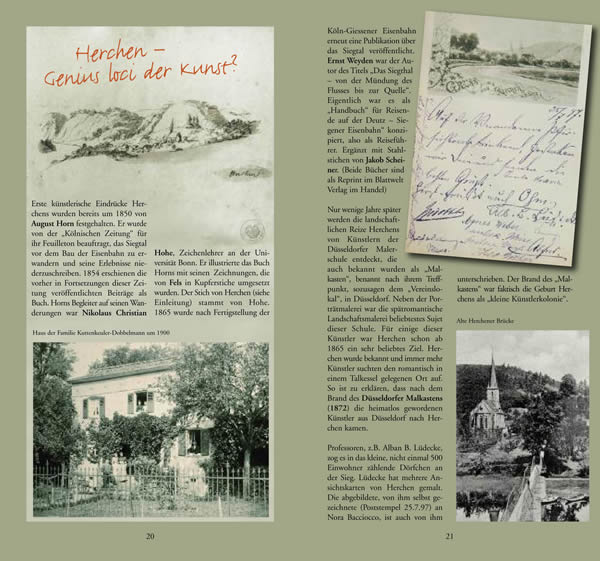 Herchen –
Genius loci der Kunst?
Erste künstlerische Eindrücke Her-
chens wurden bereits um 1850 von
August Horn festgehalten. Er wurde
von der „Kölnischen Zeitung“ für
ihr Feuilleton beauftragt, das Siegtal
vor dem Bau der Eisenbahn zu er-
wandern und seine Erlebnisse nie-
derzuschreiben. 1854 erschienen die
vorher in Fortsetzungen dieser Zei-
tung veröffentlichen Beiträge als
Buch. Horns Begleiter auf seinen Wan-
derungen war Nikolaus Christian
Hohe, Zeichenlehrer an der Uni-
versität Bonn. Er illustrierte das Buch
Horns mit seinen Zeichnungen, die
von Fels in Kupferstiche umgesetzt
wurden. Der Stich von Herchen (siehe
Einleitung) stammt von Hohe.
1865 wurde nach Fertigstellung der
Haus der Familie Kuttenkeuler-Dobbelmann um 1900
20
Köln-Giessener Eisenbahn
erneut eine Publikation über
das Siegtal veröffentlicht.
Ernst Weyden war der Au-
tor des Titels „Das Siegthal
– von der Mündung des
Flusses bis zur Quelle“.
Eigentlich war es als
„Handbuch“ für Reisen-
de auf der Deutz – Sie-
gener Eisenbahn“ konzi-
piert, also als Reisefüh-
rer. Ergänzt mit Stahl-
stichen von Jakob Schei-
ner. (Beide Bücher sind
als Reprint im Blattwelt
Verlag im Handel)
Nur wenige Jahre später
werden die landschaft-
lichen Reize Herchens
von Künstlern der
Düsseldorfer Maler-
schule entdeckt, die
auch bekannt wurden als „Mal-
kasten“, benannt nach ihrem Treff-
punkt, sozusagen dem „Vereinslo-
kal“, in Düsseldorf. Neben der Por-
trätmalerei war die spätromantische
Landschaftsmalerei beliebtestes Sujet
dieser Schule. Für einige dieser
Künstler war Herchen schon ab
1865 ein sehr beliebtes Ziel. Her-
chen wurde bekannt und immer mehr
Künstler suchten den romantisch in
einem Talkessel gelegenen Ort auf.
So ist zu erklären, dass nach dem
Brand des Düsseldorfer Malkastens
(1872) die heimatlos gewordenen
Künstler aus Düsseldorf nach Her-
chen kamen.
Professoren, z.B. Alban B. Lüdecke,
zog es in das kleine, nicht einmal 500
Einwohner zählende Dörfchen an
der Sieg. Lüdecke hat mehrere An-
sichtskarten von Herchen gemalt.
Die abgebildete, von ihm selbst ge-
zeichnete (Poststempel 25.7.97) an
Nora Bacciocco, ist auch von ihm
unterschrieben. Der Brand des „Mal-
kastens“ war faktisch die Geburt Her-
chens als „kleine Künstlerkolonie“.
Alte Herchener Brücke
21